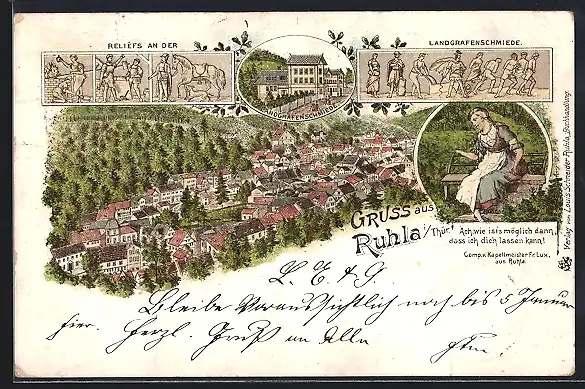 RELIEFS AN DER
LANDGRAFENSCHMIEDE.
LANDGRAFENSCHMIEDE
GRUSS aus
Ruhla i/Thür.
Ach, wie ist's möglich dann,
dass ich dich lassen kann!
Comp. v. Kapellmeister Fr. Lux,
aus Ruhla.
Verlag von Louis Schneider Ruhla, Buchhandlung.
L. E. & G.
Bleibe Voraussichtlich noch bis 5 Januar
hier. Herzl. Gruß an Alle